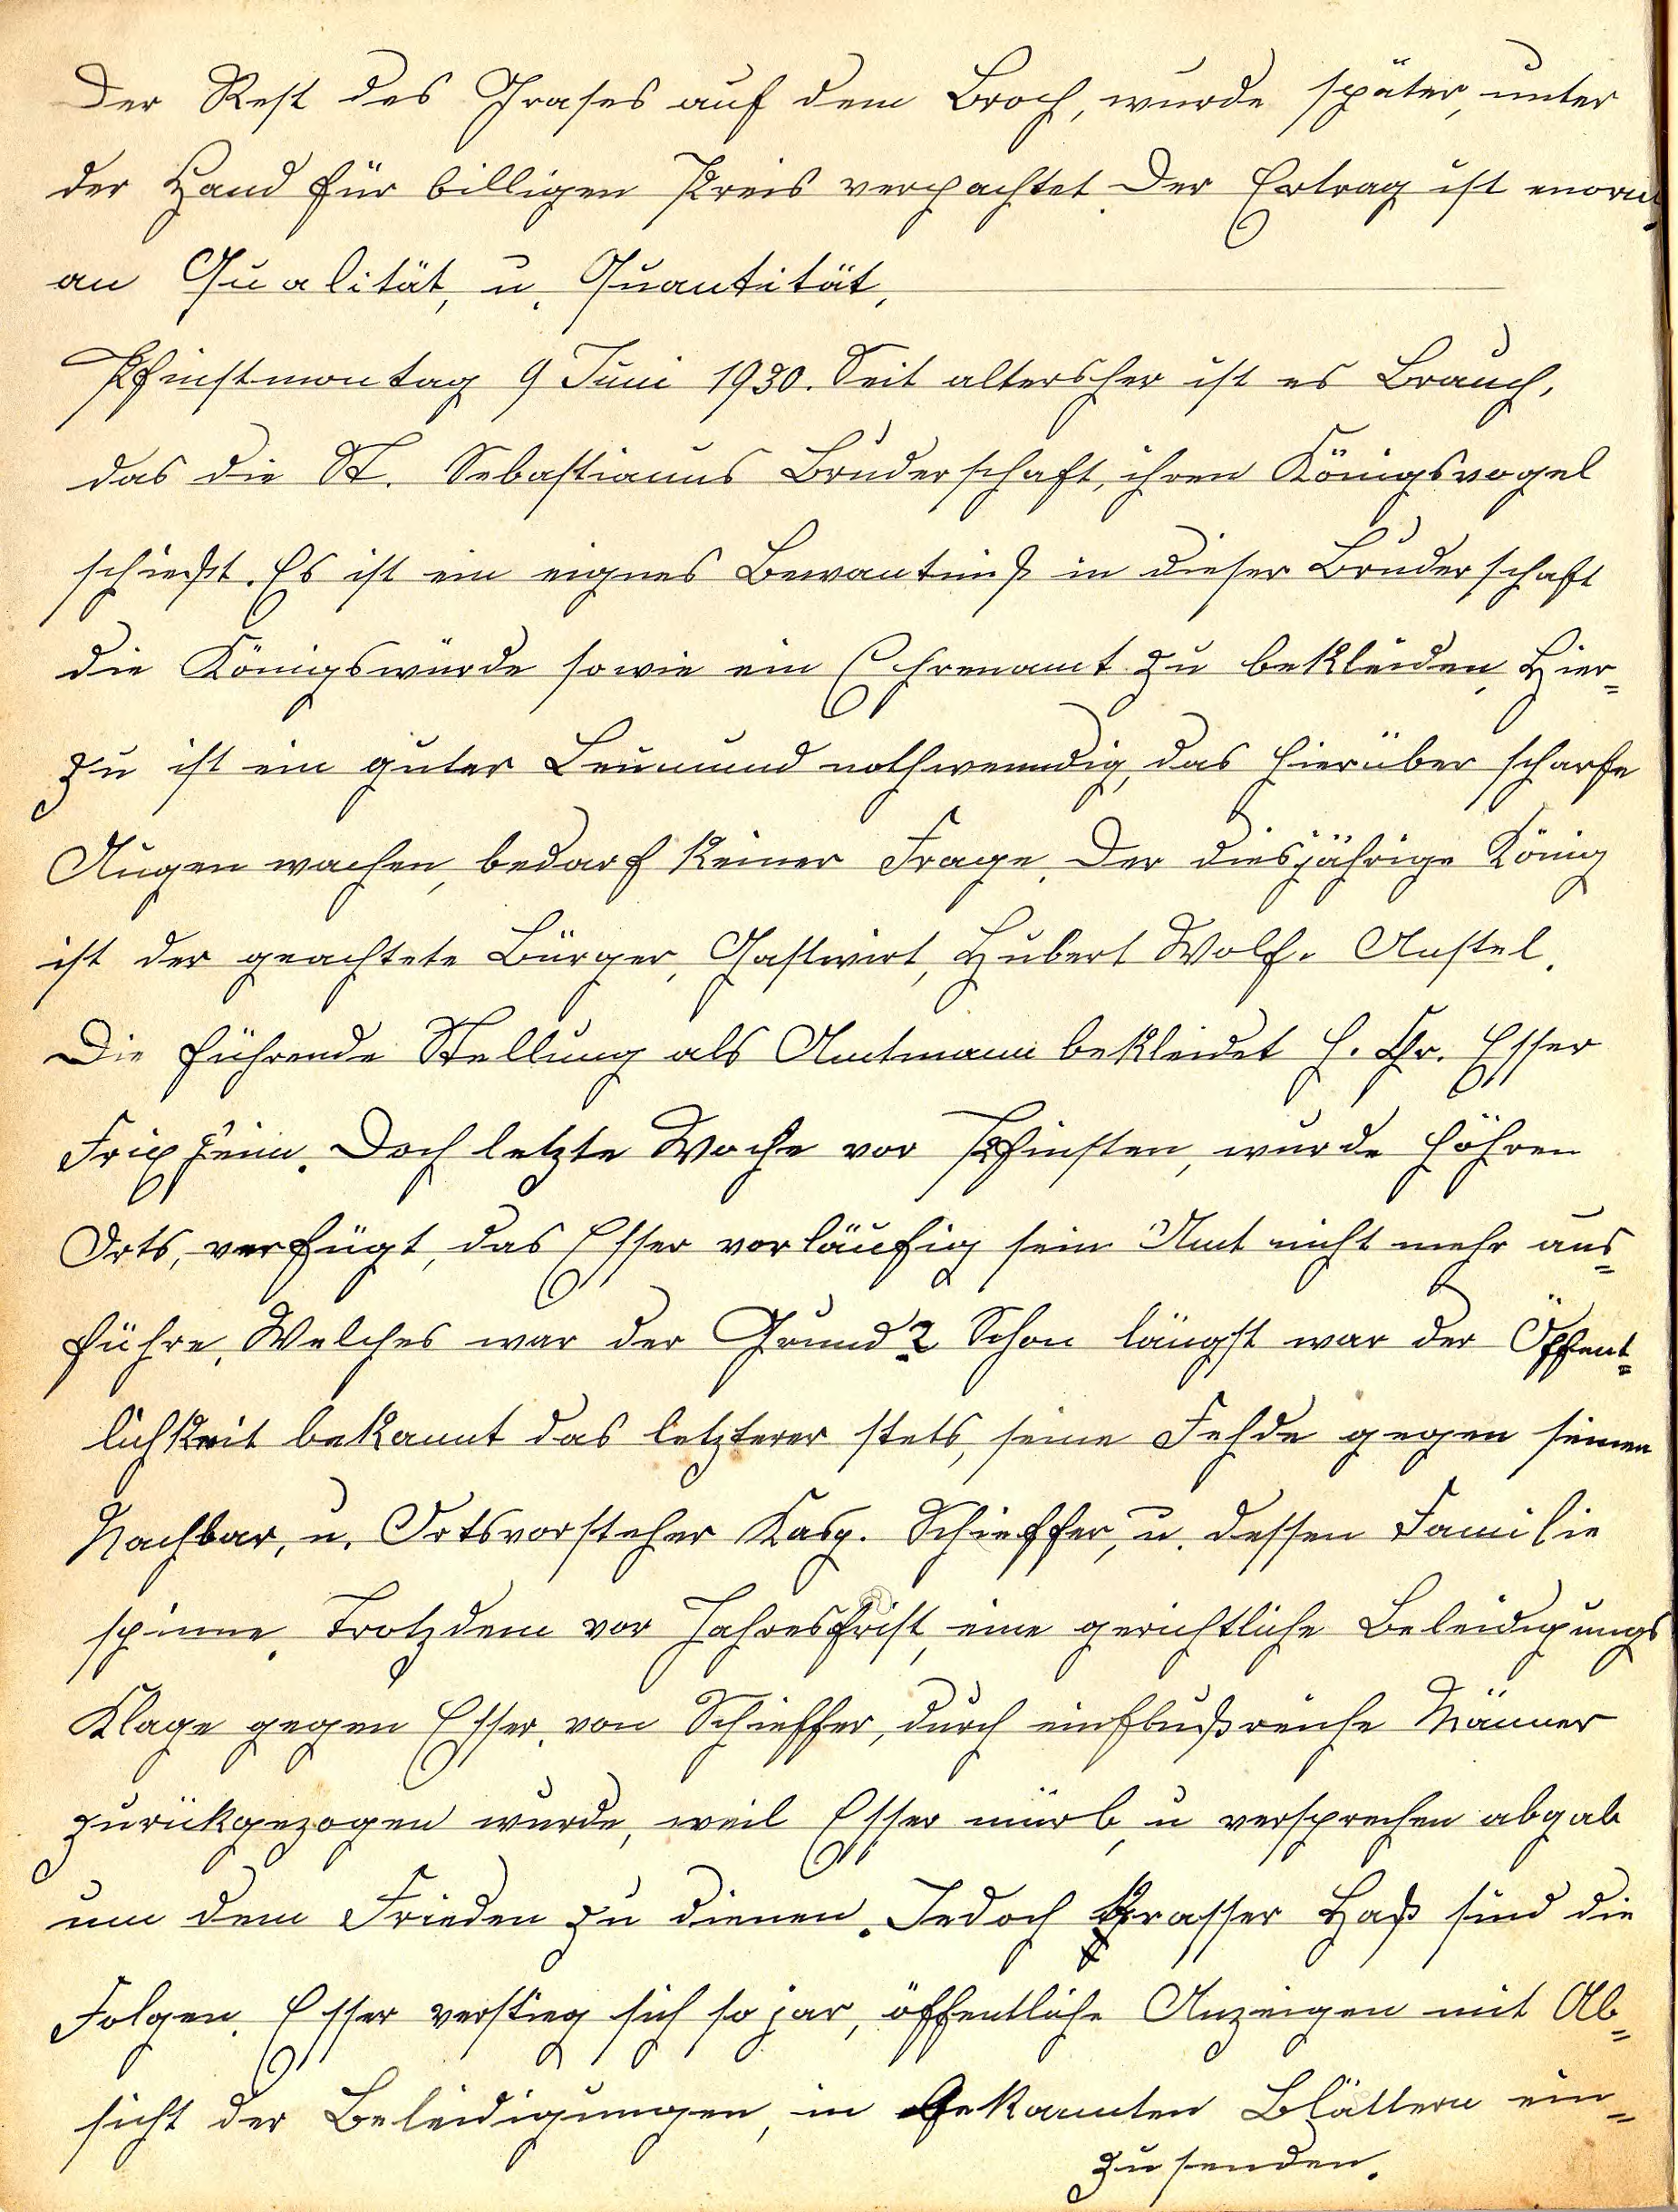 Der Rest des Grases auf dem Broch, wurde später, unter
der Hand für billigen Preis verpachtet. Der Ertrag ist enorm
an Qualität, u. Quantität,
Pfinstmontag 9 Juni 1930. Seit altersher ist es Brauch,
das die St. Sebastianus Bruderschaft, ihren Königsvogel
schießt. Es ist ein eignes Bewantniß in dieser Bruderschaft
die Königswürde sowie ein Ehrenamt zu bekleiden, Hier=
zu ist ein guter Leumund nothwenndig, das hierüber scharfe
Augen wachen, bedarf keiner Frage. Der diesjährige König
ist der geachtete Bürger, Gastwirt, Hubert Wolf. Anstel.
Die führende Stellung als Amtmann bekleidet H. Chr. Esser
Frixheim. Doch letzte Woche vor Pfinsten, wurde höhren
Orts, verfügt, das Esser vorläufig sein Amt nicht mehr aus=
führe, Welches war der Grund? Schon längst war der Öffent=
lichkeit bekannt das letzterer stets, seine Fehde gegen seinen
Nachbar, u. Ortsvorsteher Kasp. Schieffer, u. dessen Familie
spinne. Trotzdem vor Jahresfrist, eine gerichtliche Beleidigungs
Klage gegen Esser, von Schieffer, durch einflußreiche Männer
zurükgezogen wurde, weil Esser mürb, u versprechen abgab
um dem Frieden zu dienen. Jedoch krasser Haß sind die
Folgen. Esser verstieg sich so jar, öffentliche Anzeigen mit Ab=
sicht der Beleidigungen, in bekannten Blättern ein=
zusenden.